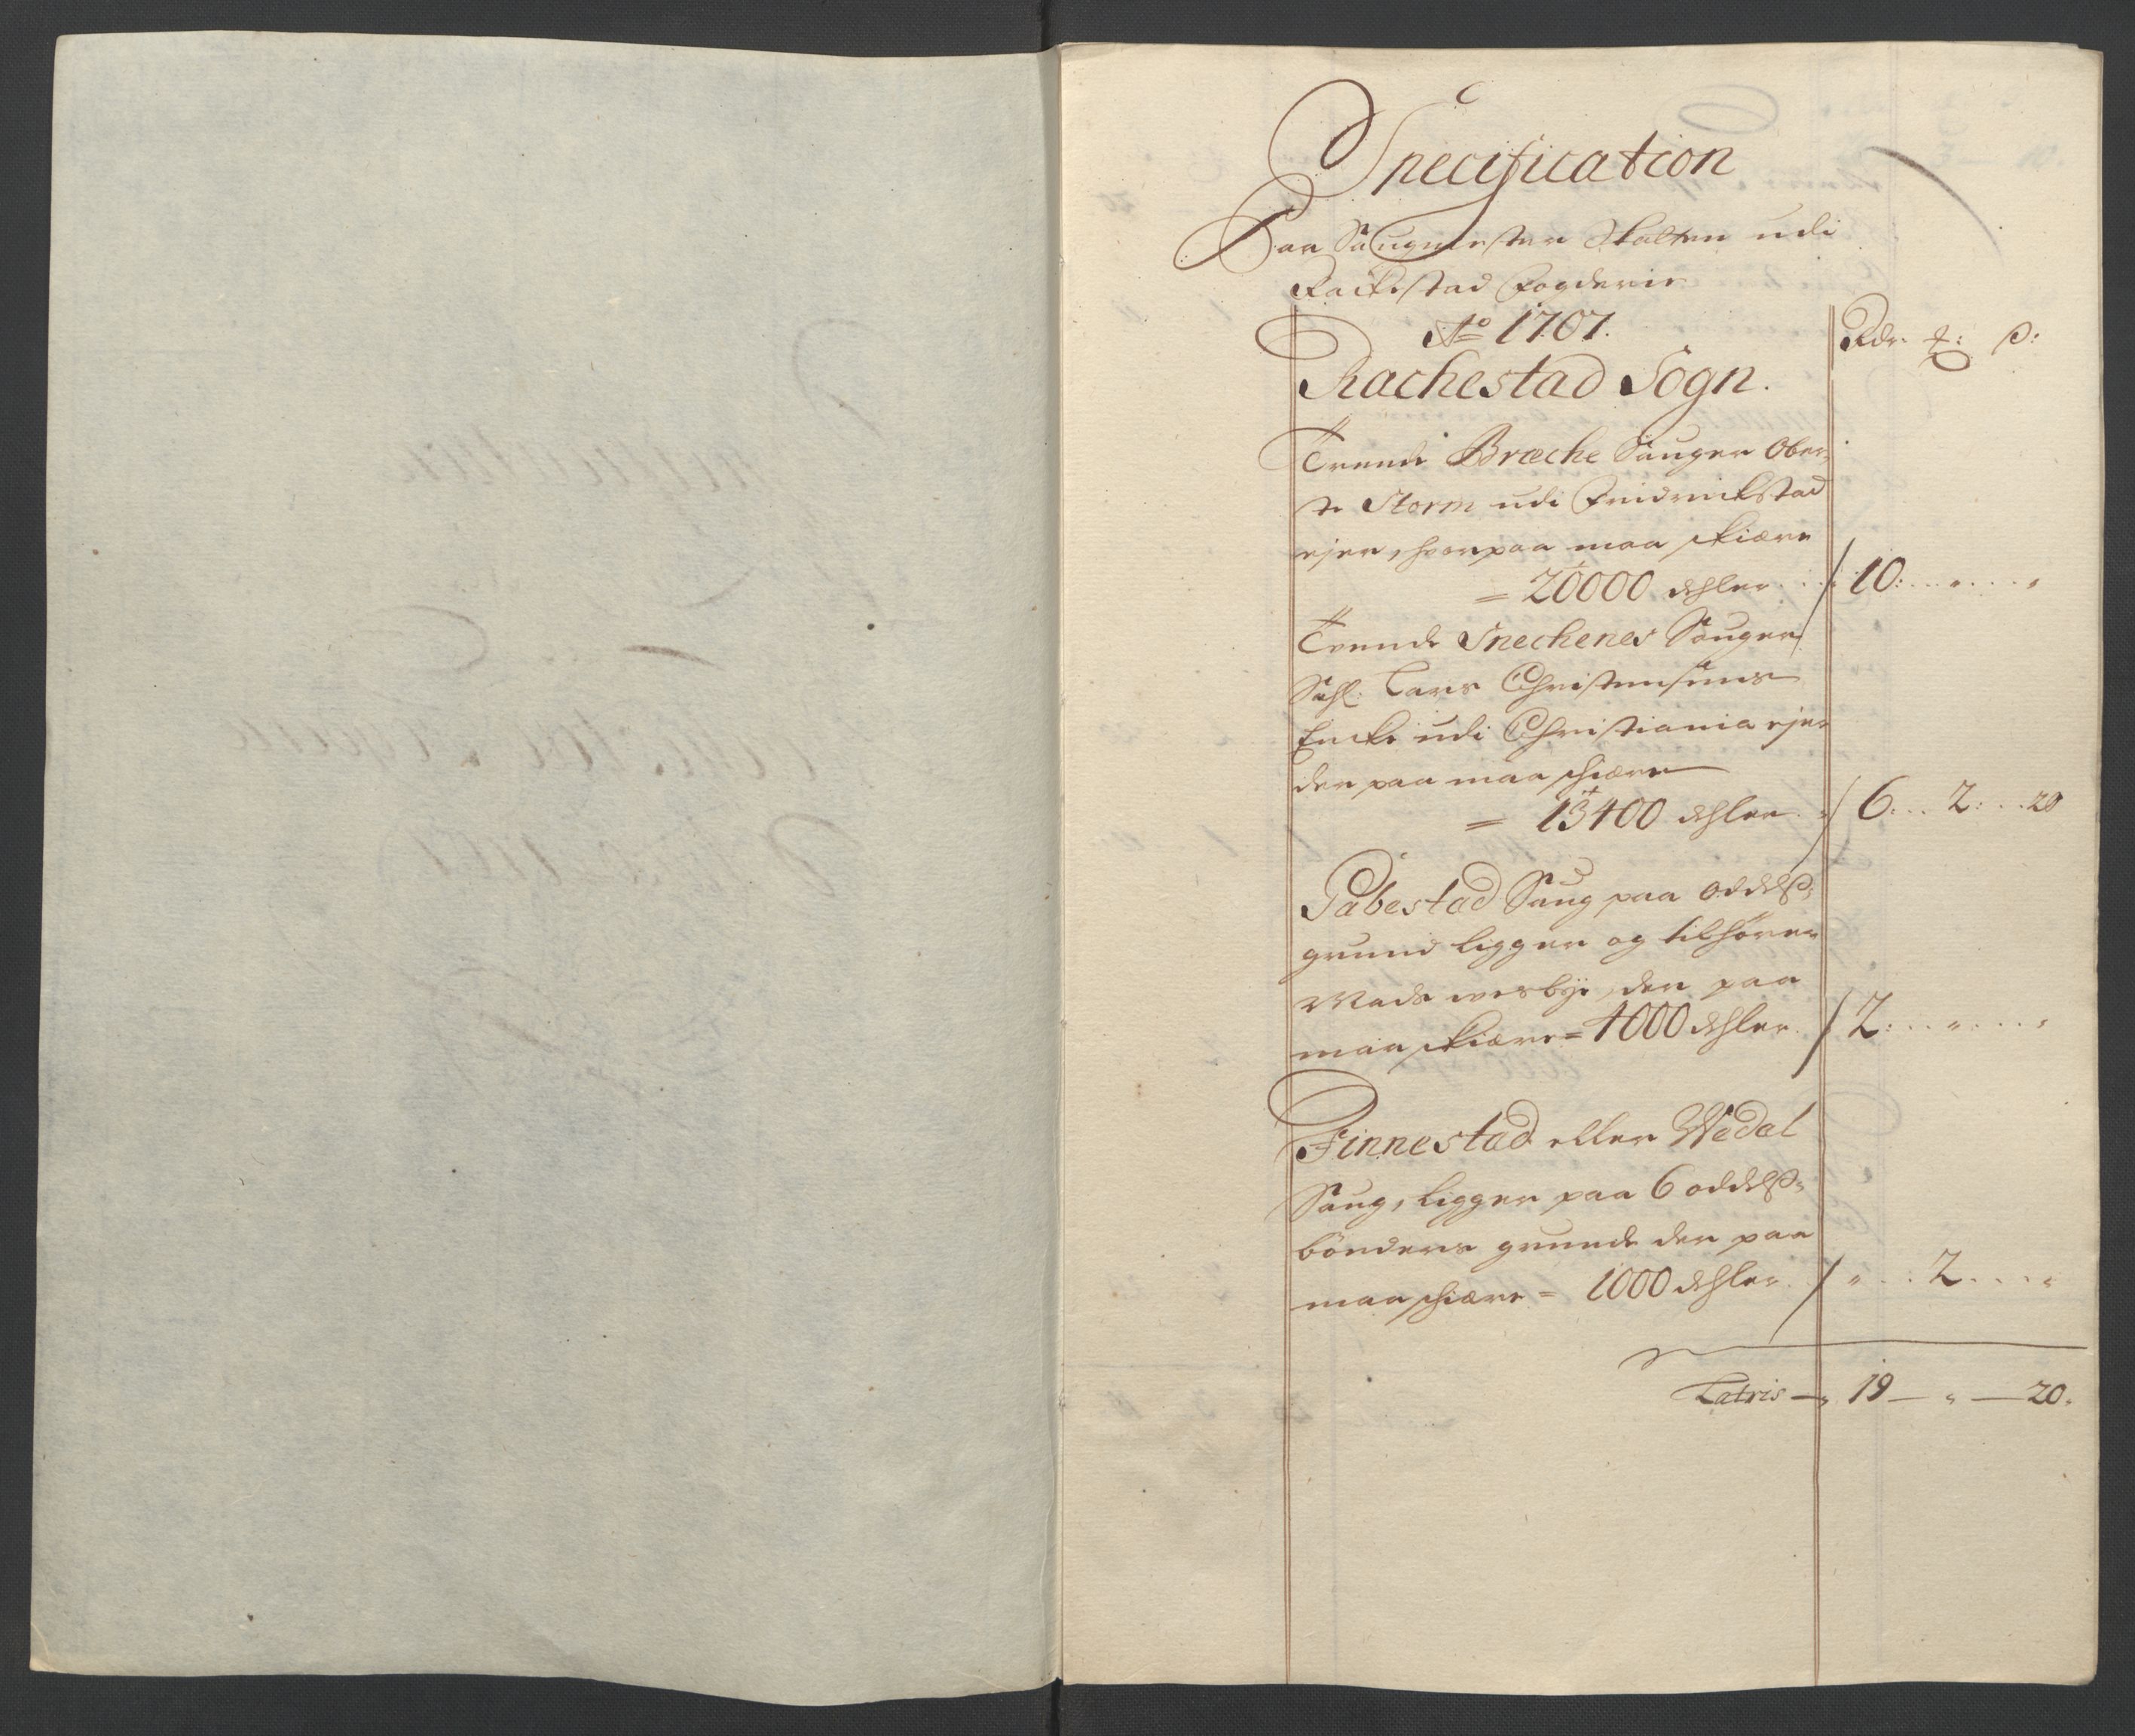 Specification
Paa Saugmester Skatten udi
Rackestad Fogderie
Ao 1707.
Rdr. ß:
Rachestad Sogn.
Trende Bræche Sauger Ober-
ste Storm udi Fridrichstad
ejer, hvorpaa maa skiære
= 20000 dehler . . . 10: . . „ . . . „
Trende Snechenes Sauger
Sahl: Lars Christensens
Encke udi Christiania ejer
der paa maa schiære
= 13400 dehler . 6: . . 2: . . 20
Pabestad Saug paa oddelß-
grund ligger og tilhører
Mads Wesbye, der paa
maa skiære = 4000 dehler . 2: . . „ . . . „
Finnestad eller Wedal
Saug, ligger paa 6 oddelß-
bønders grunde der paa
maa schiære = 1000 dehler . „ . . 2 . . . „
Latris — 19 — „ — 20.